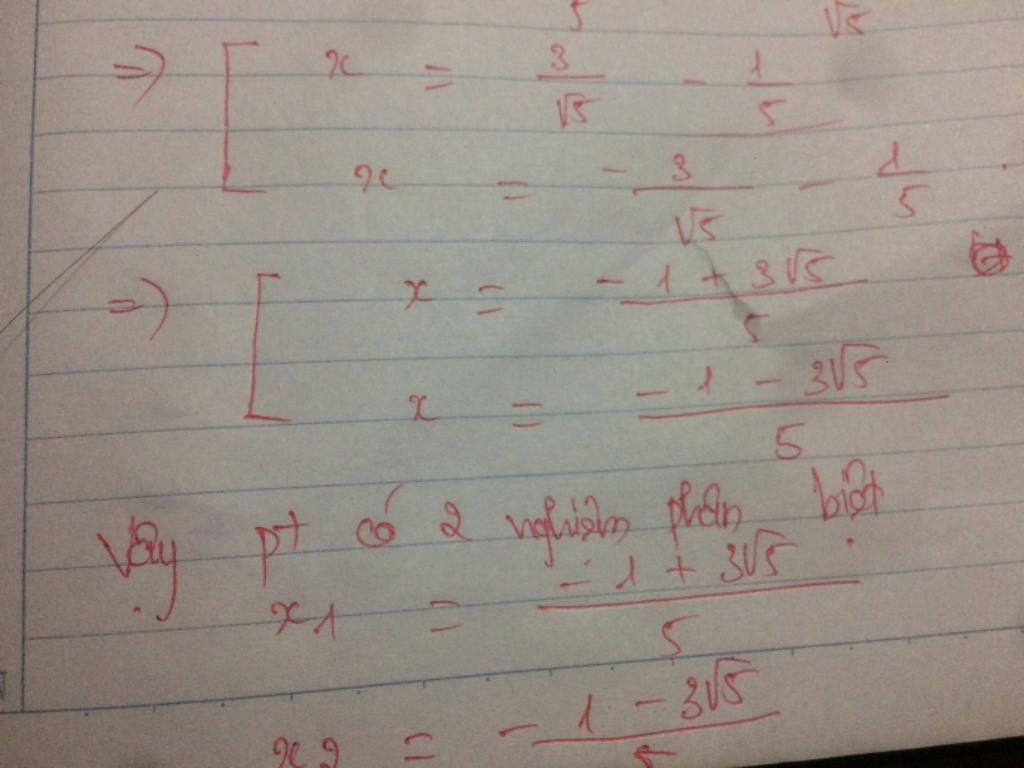 5 √5
=> [ x = 3/√5 - 1/5
x = -3/√5 - 1/5 .
=> [ x = (-1 + 3√5)/5
x = (-1 - 3√5)/5
Vậy pt có 2 nghiệm phân biệt
x1 = (-1 + 3√5)/5
x2 = (-1 - 3√5)/5